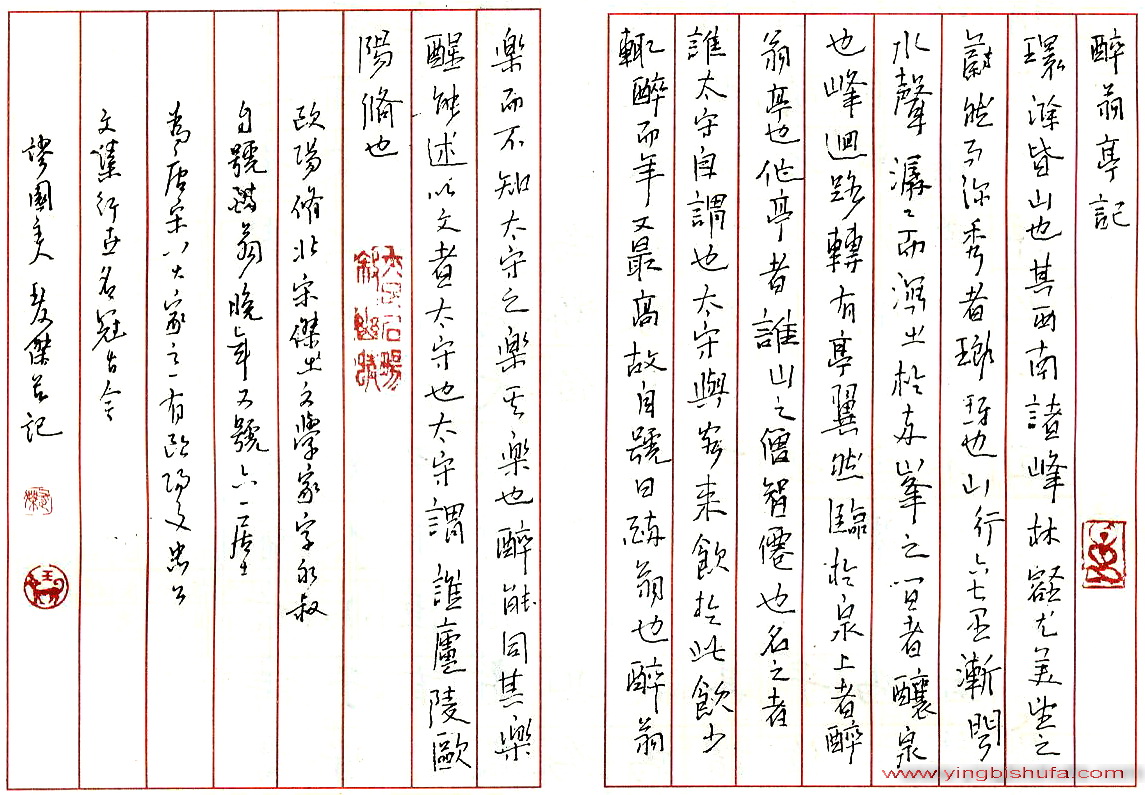 醉翁亭記
環滁皆山也其西南諸峰林壑尤美望之
蔚然而深秀者瑯琊也山行六七里漸聞
水聲潺々而瀉出於兩峯之間者釀泉
也峰迴路轉有亭翼然臨於泉上者醉
翁亭也作亭者誰山之僧智僊也名之者
誰太守自謂也太守與客来飲於此飲少
輒醉而年又最高故自號曰醉翁也醉翁
樂而不知太守之樂其樂也醉能同其樂
醒能述以文者太守也太守謂誰廬陵歐
陽脩也
欧陽脩北宋傑出文學家字永叔
自號醉翁晚年又號六一居士
為唐宋八大家之一有欧陽文忠公
文集行世名冠古今
www.yingbishufa.com